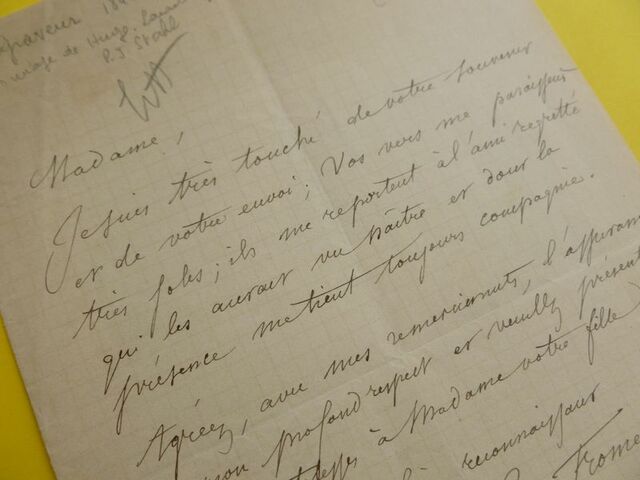 graveur 184
image de Hugo
P.J Stahl
Madame,
Je suis très touché de votre souvenir
et de votre envoi; Vos vers me paraissent
très jolis; ils me reportent à l'ami regretté
qui les aurait vu naître et dont la
présence me tient toujours compagnie.
Agréez, avec mes remerciements, l'assuran
mon profond respect et veuillez présent
à Madame votre fille
reconnaissan
Frome